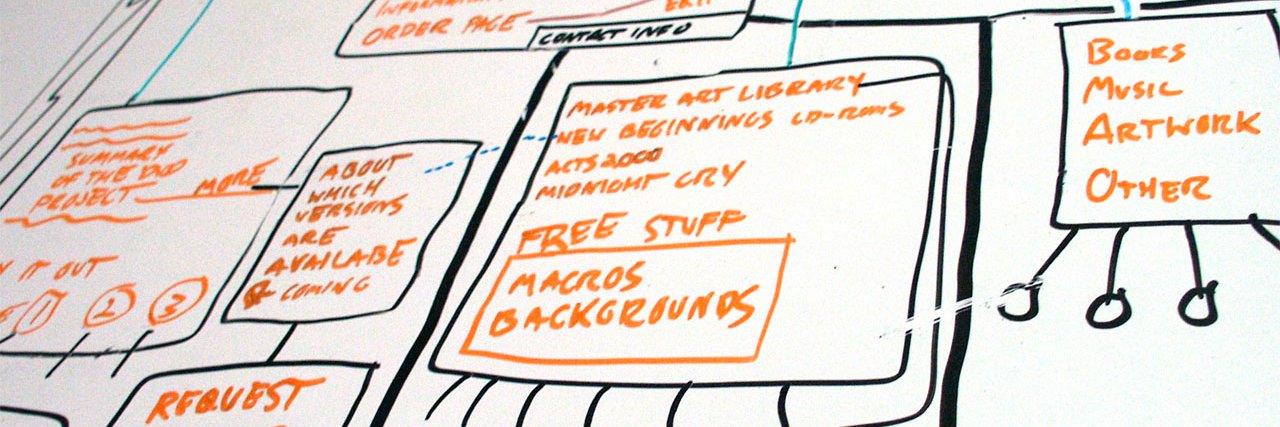 ORDER PAGE
CONTACT INFO
SUMMARY
OF THE DVD
PROJECT
MORE
IT OUT
1 2 3
ABOUT
WHICH
VERSIONS
ARE
AVAILABE
COMING
REQUEST
MASTER ART LIBRARY
NEW BEGINNINGS CD-ROMS
ACTS 2000
MIDNIGHT CRY
FREE STUFF
MACROS
BACKGROUNDS
BOOKS
MUSIC
ARTWORK
OTHER